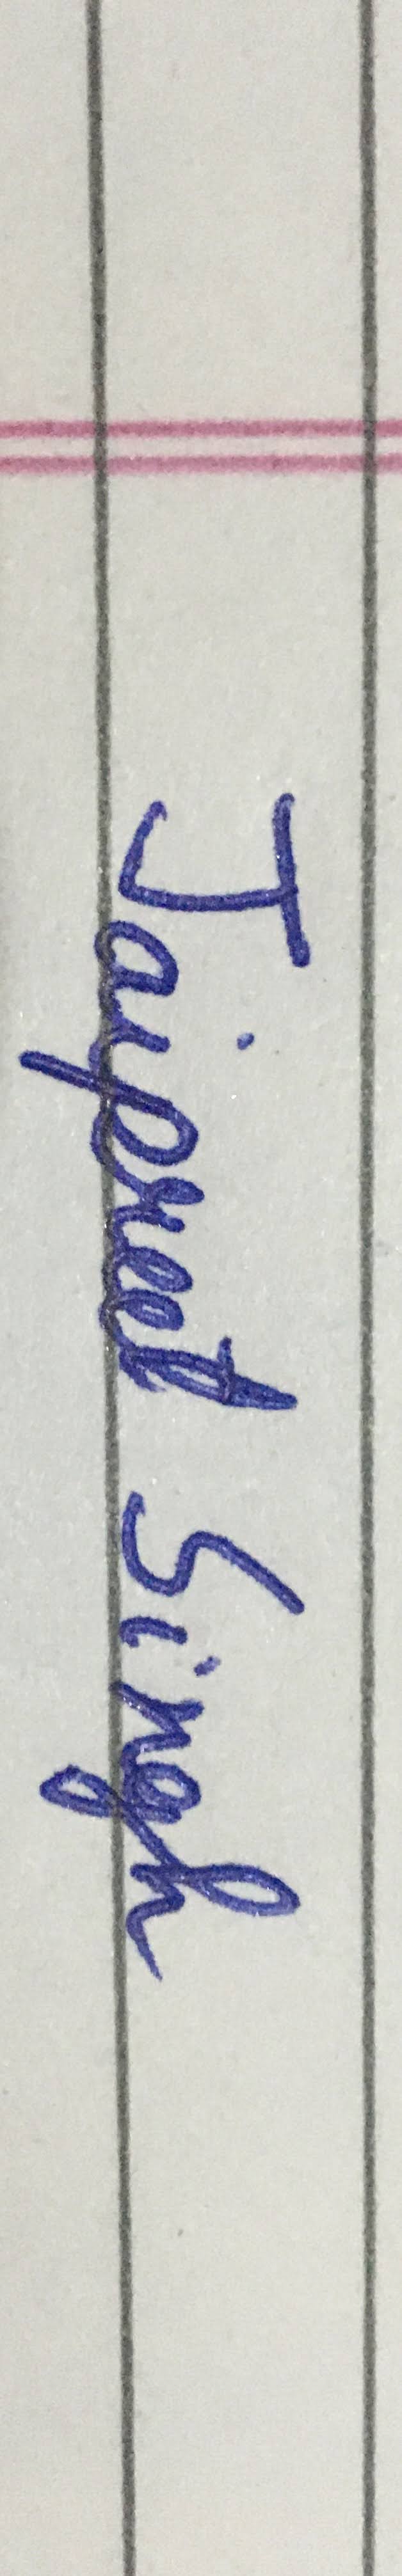 Jaipreet Singh